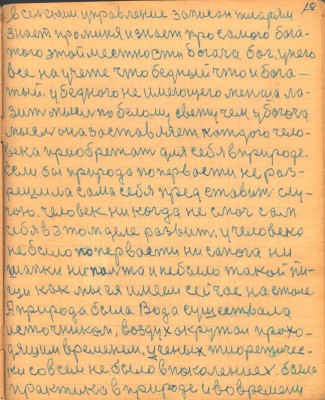 18
всем знает про меня и знает про самого бога-
того этой местности богача бог, у него
все на учете что бедный что и бога-
тый. у бедного не имеющего меньша ла-
зит мысль по белому свету чем у богоча
мысль она заставляет каждого чело-
века приобретат для себя в природе.
если бы природа по первасти не раз-
решила сама себя представит слу-
гою. человек никогда не смог сам
себя в этом деле развит, у человека
не было по первасти ни сапога ни
шапки ни пальто и небыло такой пи-
щи как мы её имеем сейчас на столе
А природа была Вода существала
источником, воздух окружал прохо-
дящим временем. ученых тиоретичес-
ки совсем не было в поколениях. была
практика в природе и во времени